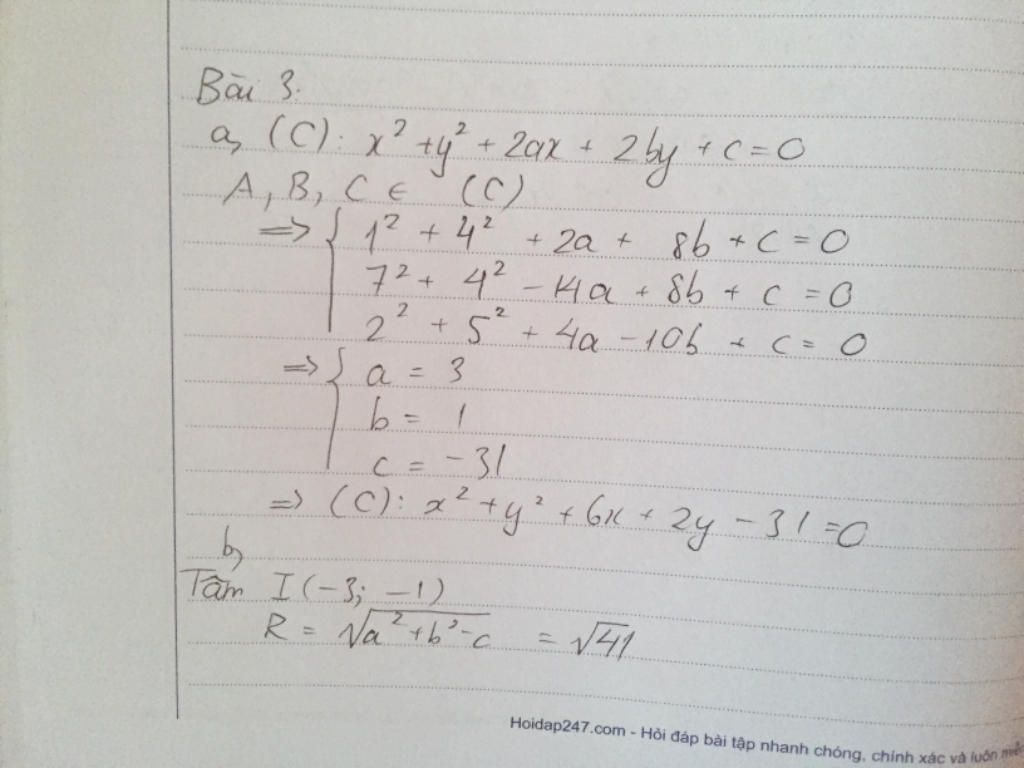 Bài 3.
a, (C): x² + y² + 2ax + 2by + c = 0
A, B, C ∈ (C)
=> { 1² + 4² + 2a + 8b + c = 0
7² + 4² - 14a + 8b + c = 0
2² + 5² + 4a - 10b + c = 0
=> { a = 3
b = 1
c = -31
=> (C): x² + y² + 6x + 2y - 31 = 0
b,
Tâm I (-3; -1)
R = √a² + b² - c = √41
Hoidap247.com - Hỏi đáp bài tập nhanh chóng, chính xác và luôn